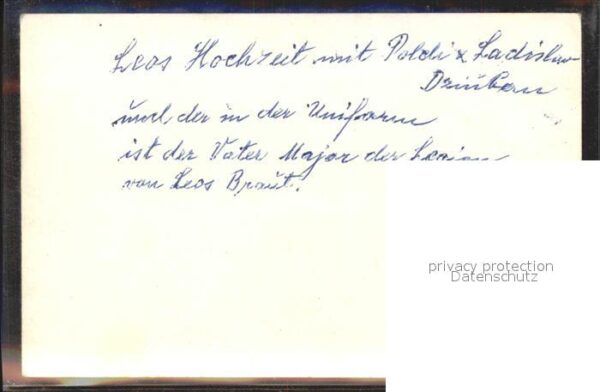 Leos Hochzeit mit Poldi x Ladislav
und der in der Uniform
ist der Vater Major der Legion
von Leos Braut.
privacy protection
Datenschutz